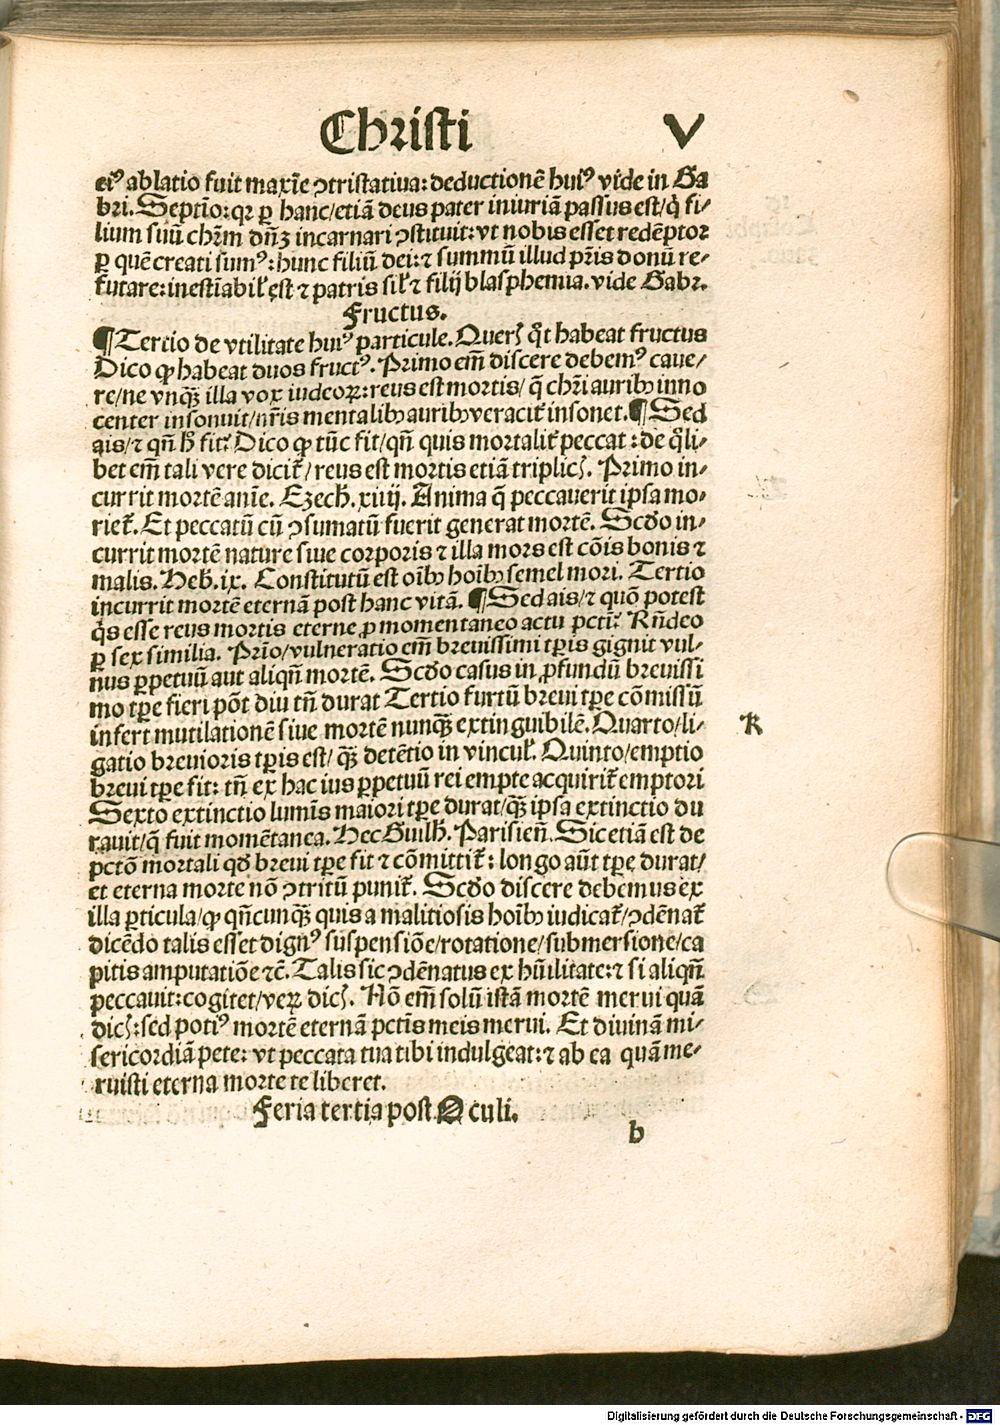 Christi V
ei⁹ ablatio fuit maxīe ↄtristatiua: deductionē hui⁹ vide in Ga
bri. Septīo: qꝛ ꝑ hanc/etiā deus pater iniuriā passus est/ꝙ fi⸗
lium suū chr̄m dn̄ꝫ incarnari ↄstituit: vt nobis esset redēptor
ꝑ quē creati sum⁹: hunc filiū dei: ⁊ summū illud pr̄is donū re⸗
futare: inestīabil' est ⁊ patris sil' ⁊ filij blasphemia. vide Gabr.
Fructus.
¶ Tertio de vtilitate hui⁹ particule. Querit̄ qͥt habeat fructus
Dico ꝙ habeat duos fruct⁹. Primo em̄ discere debem⁹ caue/
re/ne vnqꝫ̄ illa vox iudeoꝝ: reus est mortis/ q̄ chr̄i auribꝰ inno
center insonuit/nr̄is mentalibꝰ auribꝰ veracit̄ insonet. ¶ Sed
ais/⁊ qn̄ h̄ fit? Dico ꝙ tūc fit/qn̄ quis mortalit̄ peccat: de qͣli⸗
bet em̄ tali vere dicit̄/reus est mortis etiā triplicit̄. Primo in⸗
currit mortē anīe. Ezech. xiiij. Anima q̄ peccauerit ipsa mo⸗
riet̄. Et peccatū cū ↄsumatū fuerit generat mortē. Scd̄o in⸗
currit mortē nature siue corporis ⁊ illa mors est cōis bonis ⁊
malis. Heb. ix. Constitutū est oībꝰ hoībꝰ semel mori. Tertio
incurrit mortē eternā post hanc vitā. ¶ Sed ais/⁊ quō potest
qͥs esse reus mortis eterne ꝓ momentaneo actu pct̄i? Rn̄deo
ꝑ sex similia. Prīo/vulneratio em̄ breuissimi tꝑis gignit vul⸗
nus ꝑpetuū aut aliqn̄ mortē. Scd̄o casus in ꝓfundū breuissi
mo tꝑe fieri pōt diu tn̄ durat Tertio furtū breui tꝑe cōmissū
infert mutilationē siue mortē nunqꝫ̄ extinguibilē. Quarto/li⸗
gatio breuioris tꝑis est/ qꝫ̄ detētio in vincul'. Quinto/emptio
breui tꝑe fit: tn̄ ex hac ius ꝑpetuū rei empte acquirit̄ emptori
Sexto extinctio lumīs maiori tꝑe durat/qꝫ̄ ipsa extinctio du
rauit/q̄ fuit momētanea. Hec Guilh. Parisien̄. Sic etiā est de
pctō mortali qd̄ breui tꝑe fit ⁊ cōmittit̄: longo aūt tꝑe durat/
et eterna morte nō ↄtritū punit̄. Scd̄o discere debemus ex
illa ꝑticula/ꝙ qn̄cunqꝫ̄ quis a malitiosis hoībꝰ iudicat̄/ↄdēnat̄
dicēdo talis esset dign⁹ suspensiōe/rotatione/submersione/ca
pitis amputatiōe ⁊c̄. Talis sic ↄdēnatus ex hūilitate: ⁊ si aliqn̄
peccauit: cogitet/veꝝ dicit̄. Nō em̄ solū istā mortē merui quā
dicit̄: sed poti⁹ mortē eternā pctīs meis merui. Et diuinā mi⸗
sericordiā pete: vt peccata tua tibi indulgeat: ⁊ ab ea quā me⸗
ruisti eterna morte te liberet.
Feria tertia post Oculi.
b
K
Digitalisierung gefördert durch die Deutsche Forschungsgemeinschaft - DFG